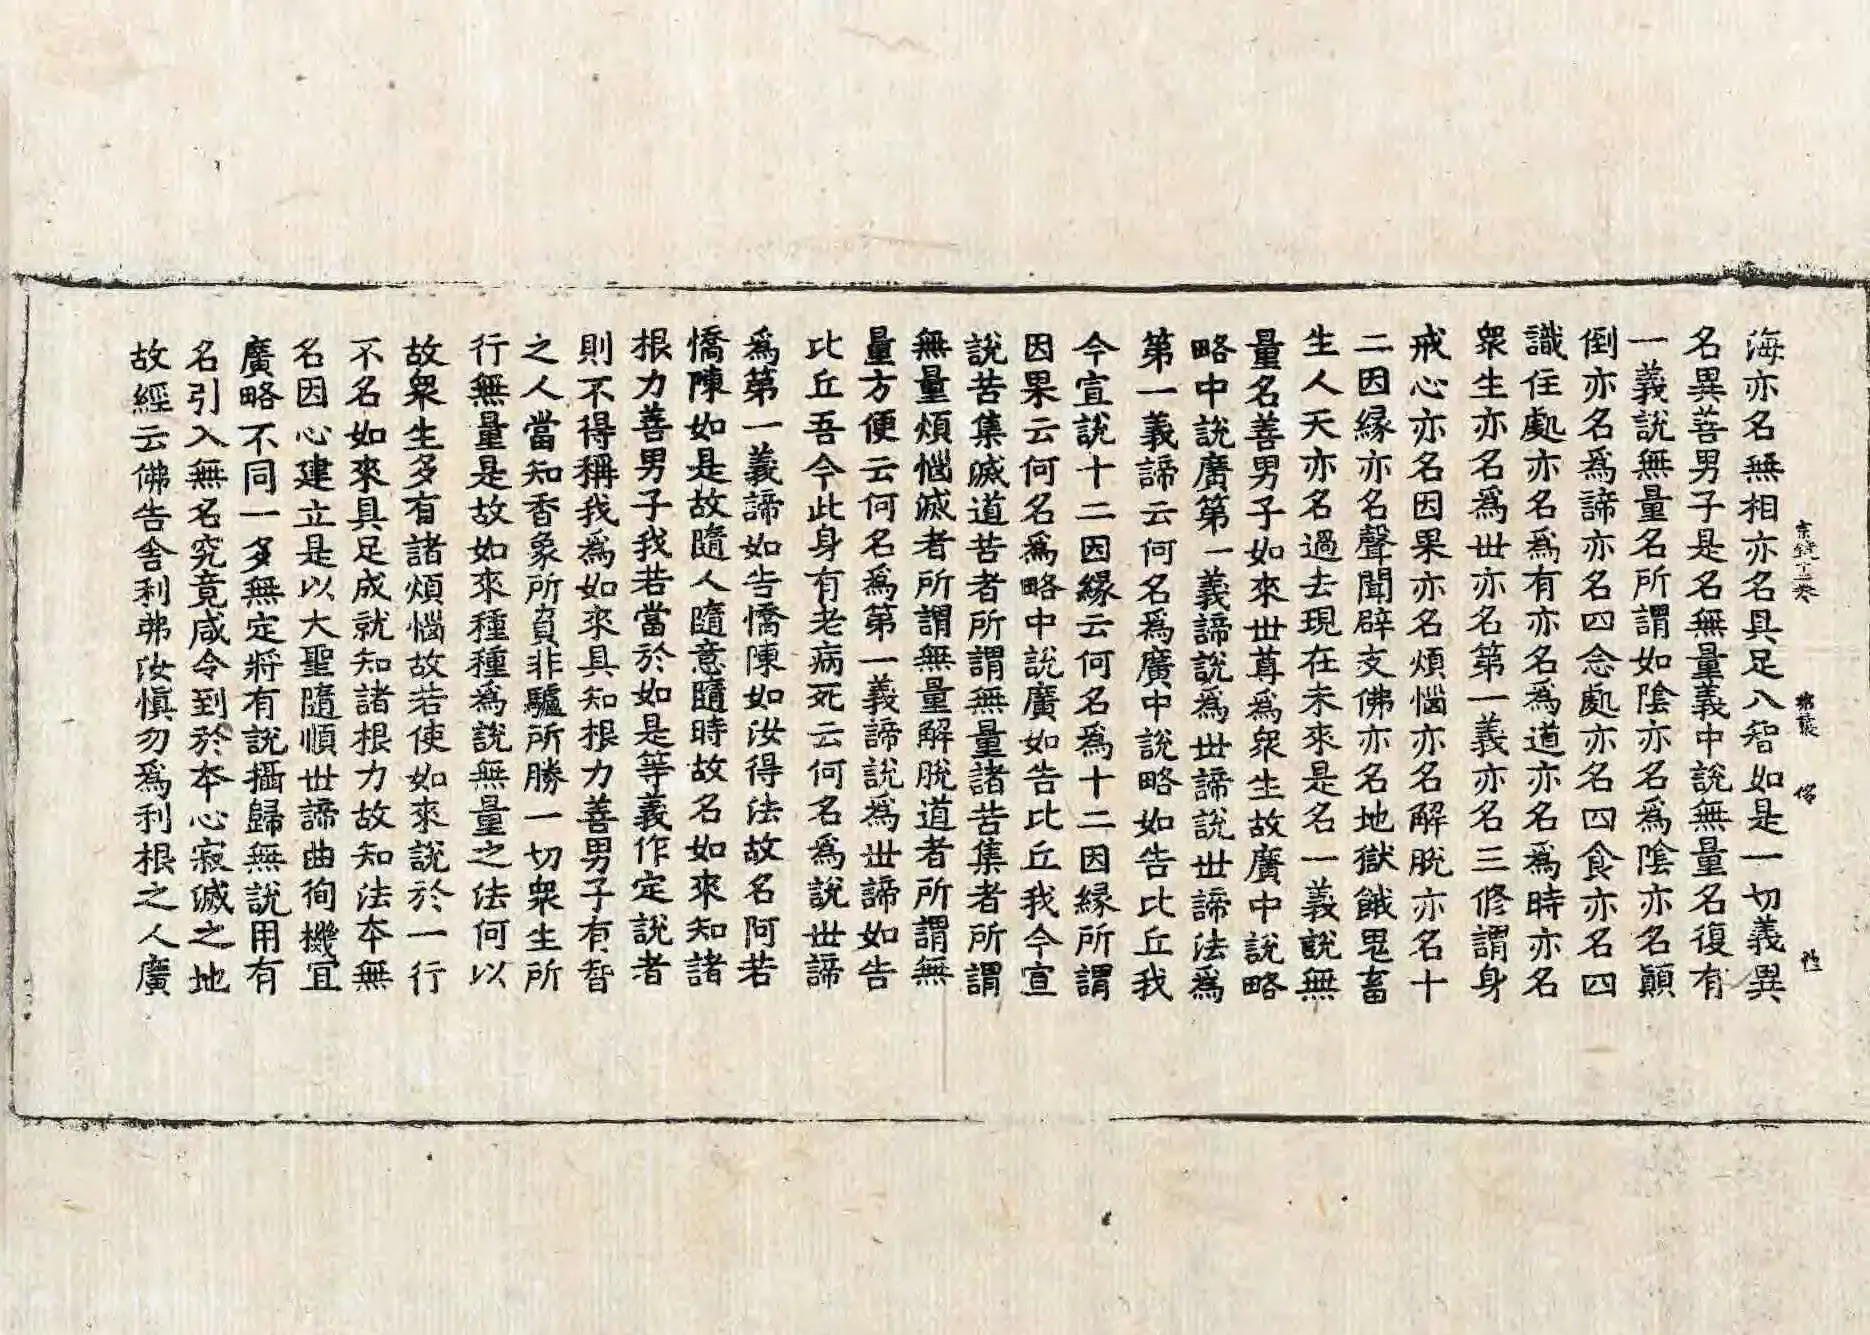 宗鏡十二卷 第張 俗
海亦名無相亦名具足八智如是一切義異
名異善男子是名無量義中說無量名復有
一義說無量名所謂如陰亦名為陰亦名顛
倒亦名為諦亦名四念處亦名四食亦名四
識住處亦名為有亦名為道亦名為時亦名
衆生亦名為世亦名第一義亦名三修謂身
戒心亦名因果亦名煩惱亦名解脫亦名十
二因緣亦名聲聞辟支佛亦名地獄餓鬼畜
生人天亦名過去現在未來是名一義說無
量名善男子如來世尊為衆生故廣中說略
略中說廣第一義諦說為世諦說世諦法為
第一義諦云何名為廣中說略如告比丘我
今宣說十二因緣云何名為十二因緣所謂
因果云何名為略中說廣如告比丘我今宣
說苦集滅道苦者所謂無量諸苦集者所謂
無量煩惱滅者所謂無量解脫道者所謂無
量方便云何名為第一義諦說為世諦如告
比丘吾今此身有老病死云何名為說世諦
為第一義諦如告憍陳如汝得法故名阿若
憍陳如是故隨人隨意隨時故名如來知諸
根力善男子我若當於如是等義作定說者
則不得稱我為如來具知根力善男子有智
之人當知香象所負非驢所勝一切衆生所
行無量是故如來種種為說無量之法何以
故衆生多有諸煩惱故若使如來說於一行
不名如來具足成就知諸根力故知法本無
名因心建立是以大聖隨順世諦曲徇機宜
廣略不同一多無定將有說攝歸無說用有
名引入無名究竟咸令到於本心寂滅之地
故經云佛告舍利弗汝慎勿為利根之人廣